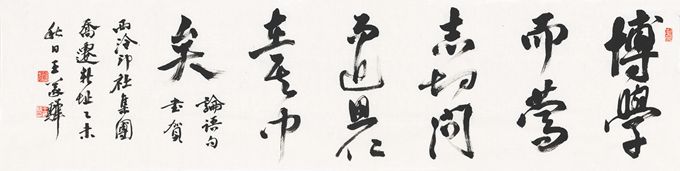 博學
而篤
志切問
而近思仁
在其中
矣
論語句
書賀
西泠印社集團
喬遷新址乙未
秋日王